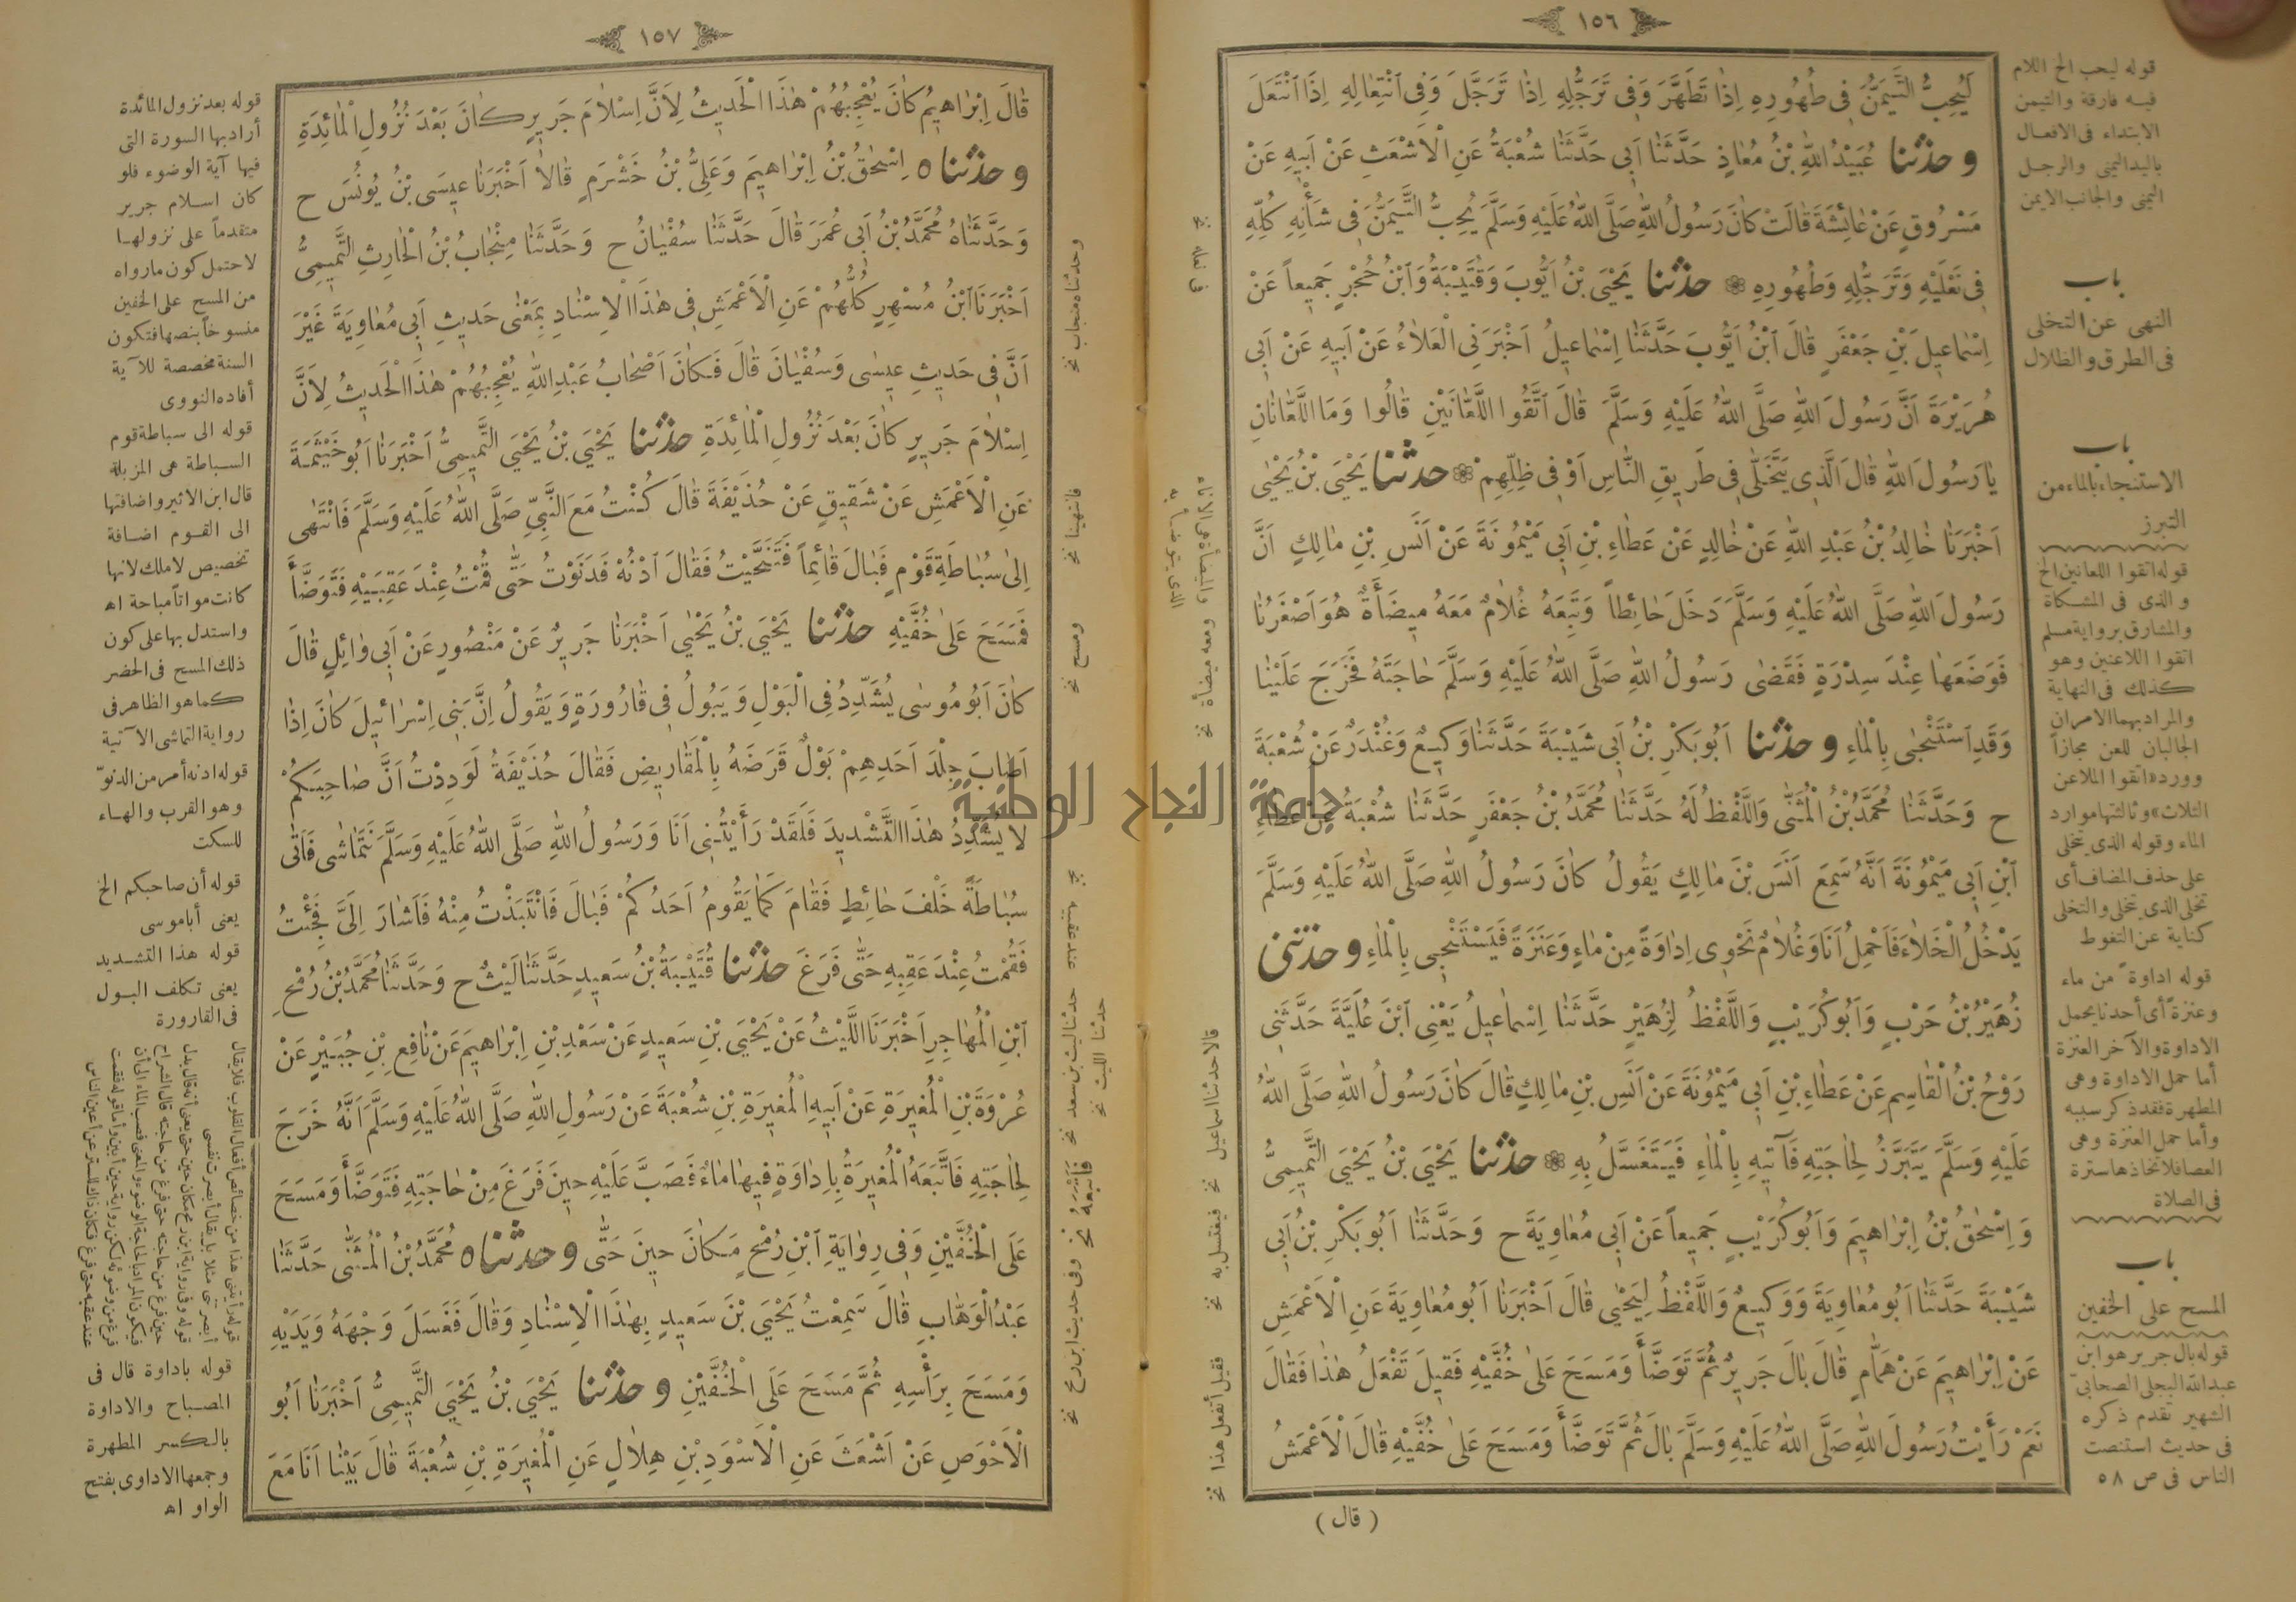 ١٥٦
لَيُحِبُّ التَّيَمُّنَ فِى طُهُورِهِ اِذَا تَطَهَّرَ وَفِى تَرَجُّلِهِ اِذَا تَرَجَّلَ وَفِى ٱنْتِعَالِهِ اِذَا ٱنْتَعَلَ
و حدثنا عُبَيْدُاللّٰهِ بْنُ مُعَاذٍ حَدَّثَنَا اَبِى حَدَّثَنَا شُعْبَةُ عَنِ الْاَشْعَثِ عَنْ اَبِيهِ عَنْ
مَسْرُوقٍ عَنْ عَائِشَةَ قَالَتْ كَانَ رَسُولُ اللّٰهِ صَلَّى اللّٰهُ عَلَيْهِ وَسَلَّمَ يُحِبُّ التَّيَمُّنَ فِى شَأْنِهِ كُلِّهِ
فِى نَعْلَيْهِ وَتَرَجُّلِهِ وَطُهُورِهِ ❁ حدثنا يَحْيَى بْنُ اَيُّوبَ وَقُتَيْبَةُ وَٱبْنُ حُجْرٍ جَمِيعاً عَنْ
اِسْمَاعِيلَ بْنِ جَعْفَرٍ قَالَ ٱبْنُ اَيُّوبَ حَدَّثَنَا اِسْمَاعِيلُ اَخْبَرَنِى الْعَلَاءُ عَنْ اَبِيهِ عَنْ اَبِى
هُرَيْرَةَ اَنَّ رَسُولَ اللّٰهِ صَلَّى اللّٰهُ عَلَيْهِ وَسَلَّمَ قَالَ ٱتَّقُوا اللَّعَّانَيْنِ قَالُوا وَمَا اللَّعَّانَانِ
يَا رَسُولَ اللّٰهِ قَالَ الَّذِى يَتَخَلَّى فِى طَرِيقِ النَّاسِ اَوْ فِى ظِلِّهِمْ ❁ حدثنا يَحْيَى بْنُ يَحْيَى
اَخْبَرَنَا خَالِدُ بْنُ عَبْدِ اللّٰهِ عَنْ خَالِدٍ عَنْ عَطَاءِ بْنِ اَبِى مَيْمُونَةَ عَنْ اَنَسِ بْنِ مَالِكٍ اَنَّ
رَسُولَ اللّٰهِ صَلَّى اللّٰهُ عَلَيْهِ وَسَلَّمَ دَخَلَ حَائِطاً وَتَبِعَهُ غُلَامٌ مَعَهُ مِيضَأَةٌ هُوَ اَصْغَرُنَا
فَوَضَعَهَا عِنْدَ سِدْرَةٍ فَقَضَى رَسُولُ اللّٰهِ صَلَّى اللّٰهُ عَلَيْهِ وَسَلَّمَ حَاجَتَهُ فَخَرَجَ عَلَيْنَا
وَقَدِ ٱسْتَنْجَى بِالْمَاءِ و حدثنا اَبُو بَكْرِ بْنُ اَبِى شَيْبَةَ حَدَّثَنَا وَكِيعٌ وَغُنْدَرٌ عَنْ شُعْبَةَ
ح وَحَدَّثَنَا مُحَمَّدُ بْنُ الْمُثَنَّى وَاللَّفْظُ لَهُ حَدَّثَنَا مُحَمَّدُ بْنُ جَعْفَرٍ حَدَّثَنَا شُعْبَةُ عَنْ عَطَاءِ
ٱبْنِ اَبِى مَيْمُونَةَ اَنَّهُ سَمِعَ اَنَسَ بْنَ مَالِكٍ يَقُولُ كَانَ رَسُولُ اللّٰهِ صَلَّى اللّٰهُ عَلَيْهِ وَسَلَّمَ
يَدْخُلُ الْخَلَاءَ فَاَحْمِلُ اَنَا وَغُلَامٌ نَحْوِى اِدَاوَةً مِنْ مَاءٍ وَعَنَزَةً فَيَسْتَنْجِى بِالْمَاءِ و حدثنى
زُهَيْرُ بْنُ حَرْبٍ وَاَبُو كُرَيْبٍ وَاللَّفْظُ لِزُهَيْرٍ حَدَّثَنَا اِسْمَاعِيلُ يَعْنِى ٱبْنَ عُلَيَّةَ حَدَّثَنِى
رَوْحُ بْنُ الْقَاسِمِ عَنْ عَطَاءِ بْنِ اَبِى مَيْمُونَةَ عَنْ اَنَسِ بْنِ مَالِكٍ قَالَ كَانَ رَسُولُ اللّٰهِ صَلَّى اللّٰهُ
عَلَيْهِ وَسَلَّمَ يَتَبَرَّزُ لِحَاجَتِهِ فَآتِيهِ بِالْمَاءِ فَيَتَغَسَّلُ بِهِ ❁ حدثنا يَحْيَى بْنُ يَحْيَى التَّمِيمِىُّ
وَاِسْحٰقُ بْنُ اِبْرَاهِيمَ وَاَبُو كُرَيْبٍ جَمِيعاً عَنْ اَبِى مُعَاوِيَةَ ح وَحَدَّثَنَا اَبُو بَكْرِ بْنُ اَبِى
شَيْبَةَ حَدَّثَنَا اَبُو مُعَاوِيَةَ وَوَكِيعٌ وَاللَّفْظُ لِيَحْيَى قَالَ اَخْبَرَنَا اَبُو مُعَاوِيَةَ عَنِ الْاَعْمَشِ
عَنْ اِبْرَاهِيمَ عَنْ هَمَّامٍ قَالَ بَالَ جَرِيرٌ ثُمَّ تَوَضَّأَ وَمَسَحَ عَلَى خُفَّيْهِ فَقِيلَ تَفْعَلُ هٰذَا فَقَالَ
نَعَمْ رَأَيْتُ رَسُولَ اللّٰهِ صَلَّى اللّٰهُ عَلَيْهِ وَسَلَّمَ بَالَ ثُمَّ تَوَضَّأَ وَمَسَحَ عَلَى خُفَّيْهِ قَالَ الْاَعْمَشُ
( قال )
قوله ليحب الخ اللام
فيه فارقة والتيمن
الابتداء فى الافعال
باليد اليمنى والرجل
اليمنى والجانب الايمن
باب
النهى عن التخلى
فى الطرق والظلال
باب
الاستنجاء بالماء من
التبرز
قوله اتقوا اللعانين الخ
والذى فى المشكاة
والمشارق برواية مسلم
اتقوا اللاعنين وهو
كذلك فى النهاية
والمراد بهما الامران
الجالبان للعن مجازاً
وورد «اتقوا الملاعن
الثلاث» وثالثتها موارد
الماء وقوله الذى يتخلى
على حذف المضاف أى
تخلى الذى يتخلى والتخلى
كناية عن التغوط
قوله اداوة من ماء
وعنزة أى أحدنا يحمل
الاداوة والآخر العنزة
أما حمل الاداوة وهى
المطهرة فقد ذكر سببه
وأما حمل العنزة وهى
العصا فلاتخاذها سترة
فى الصلاة
باب
المسح على الخفين
قوله بال جرير هو ابن
عبدالله البجلى الصحابىّ
الشهير تقدم ذكره
فى حديث استنصت
الناس فى ص ٥٨
فى نعله نخ
ومعه ميضأة نخ
قالا حدثنا اسماعيل نخ
فيغتسل به نخ
فقيل أتفعل هذا نخ
جامعة النجاح الوطنية
١٥٧
قَالَ اِبْرَاهِيمُ كَانَ يُعْجِبُهُمْ هٰذَا الْحَدِيثُ لِاَنَّ اِسْلَامَ جَرِيرٍ كَانَ بَعْدَ نُزُولِ الْمَائِدَةِ
و حدثنا ه اِسْحٰقُ بْنُ اِبْرَاهِيمَ وَعَلِىُّ بْنُ خَشْرَمٍ قَالَا اَخْبَرَنَا عِيسَى بْنُ يُونُسَ ح
وَحَدَّثَنَاهُ مُحَمَّدُ بْنُ اَبِى عُمَرَ قَالَ حَدَّثَنَا سُفْيَانُ ح وَحَدَّثَنَا مِنْجَابُ بْنُ الْحَارِثِ التَّمِيمِىُّ
اَخْبَرَنَا ٱبْنُ مُسْهِرٍ كُلُّهُمْ عَنِ الْاَعْمَشِ فِى هٰذَا الْاِسْنَادِ بِمَعْنَى حَدِيثِ اَبِى مُعَاوِيَةَ غَيْرَ
اَنَّ فِى حَدِيثِ عِيسَى وَسُفْيَانَ قَالَ فَكَانَ اَصْحَابُ عَبْدِاللّٰهِ يُعْجِبُهُمْ هٰذَا الْحَدِيثُ لِاَنَّ
اِسْلَامَ جَرِيرٍ كَانَ بَعْدَ نُزُولِ الْمَائِدَةِ حدثنا يَحْيَى بْنُ يَحْيَى التَّمِيمِىُّ اَخْبَرَنَا اَبُو خَيْثَمَةَ
عَنِ الْاَعْمَشِ عَنْ شَقِيقٍ عَنْ حُذَيْفَةَ قَالَ كُنْتُ مَعَ النَّبِىِّ صَلَّى اللّٰهُ عَلَيْهِ وَسَلَّمَ فَانْتَهَى
اِلَى سُبَاطَةِ قَوْمٍ فَبَالَ قَائِماً فَتَنَحَّيْتُ فَقَالَ اَدْنُهْ فَدَنَوْتُ حَتَّى قُمْتُ عِنْدَ عَقِبَيْهِ فَتَوَضَّأَ
فَمَسَحَ عَلَى خُفَّيْهِ حدثنا يَحْيَى بْنُ يَحْيَى اَخْبَرَنَا جَرِيرٌ عَنْ مَنْصُورٍ عَنْ اَبِى وَائِلٍ قَالَ
كَانَ اَبُو مُوسَى يُشَدِّدُ فِى الْبَوْلِ وَيَبُولُ فِى قَارُورَةٍ وَيَقُولُ اِنَّ بَنِى اِسْرَائِيلَ كَانَ اِذَا
اَصَابَ جِلْدَ اَحَدِهِمْ بَوْلٌ قَرَضَهُ بِالْمَقَارِيضِ فَقَالَ حُذَيْفَةُ لَوَدِدْتُ اَنَّ صَاحِبَكُمْ
لَا يُشَدِّدُ هٰذَا التَّشْدِيدَ فَلَقَدْ رَأَيْتُنِى اَنَا وَرَسُولُ اللّٰهِ صَلَّى اللّٰهُ عَلَيْهِ وَسَلَّمَ نَتَمَاشَى فَاَتَى
سُبَاطَةً خَلْفَ حَائِطٍ فَقَامَ كَمَا يَقُومُ اَحَدُكُمْ فَبَالَ فَانْتَبَذْتُ مِنْهُ فَاَشَارَ اِلَىَّ فَجِئْتُ
فَقُمْتُ عِنْدَ عَقِبِهِ حَتَّى فَرَغَ حدثنا قُتَيْبَةُ بْنُ سَعِيدٍ حَدَّثَنَا لَيْثٌ ح وَحَدَّثَنَا مُحَمَّدُ بْنُ رُمْحِ
ٱبْنِ الْمُهَاجِرِ اَخْبَرَنَا اللَّيْثُ عَنْ يَحْيَى بْنِ سَعِيدٍ عَنْ سَعْدِ بْنِ اِبْرَاهِيمَ عَنْ نَافِعِ بْنِ جُبَيْرٍ عَنْ
عُرْوَةَ بْنِ الْمُغِيرَةِ عَنْ اَبِيهِ الْمُغِيرَةِ بْنِ شُعْبَةَ عَنْ رَسُولِ اللّٰهِ صَلَّى اللّٰهُ عَلَيْهِ وَسَلَّمَ اَنَّهُ خَرَجَ
لِحَاجَتِهِ فَاتَّبَعَهُ الْمُغِيرَةُ بِاِدَاوَةٍ فِيهَا مَاءٌ فَصَبَّ عَلَيْهِ حِينَ فَرَغَ مِنْ حَاجَتِهِ فَتَوَضَّأَ وَمَسَحَ
عَلَى الْخُفَّيْنِ وَفِى رِوَايَةِ ٱبْنِ رُمْحٍ مَكَانَ حِينَ حَتَّى و حدثنا ه مُحَمَّدُ بْنُ الْمُثَنَّى حَدَّثَنَا
عَبْدُالْوَهَّابِ قَالَ سَمِعْتُ يَحْيَى بْنَ سَعِيدٍ بِهٰذَا الْاِسْنَادِ وَقَالَ فَغَسَلَ وَجْهَهُ وَيَدَيْهِ
وَمَسَحَ بِرَأْسِهِ ثُمَّ مَسَحَ عَلَى الْخُفَّيْنِ و حدثنا يَحْيَى بْنُ يَحْيَى التَّمِيمِىُّ اَخْبَرَنَا اَبُو
الْاَحْوَصِ عَنْ اَشْعَثَ عَنِ الْاَسْوَدِ بْنِ هِلَالٍ عَنِ الْمُغِيرَةِ بْنِ شُعْبَةَ قَالَ بَيْنَا اَنَا مَعَ
وحدثناه منجاب نخ
فانتهينا نخ
ومسح نخ
عند عقبيه نخ
حدثنا ليث بن سعد نخ
حدثنا الليث نخ
فاتبعه نخ
وفى حديث ابن رمح نخ
قوله بعد نزول المائدة
أراد بها السورة التى
فيها آية الوضوء فلو
كان اسلام جرير
متقدماً على نزولها
لاحتمل كون مارواه
من المسح على الخفين
منسوخاً بنصها فتكون
السنة مخصصة للآية
أفاده النووى
قوله الى سباطة قوم
السباطة هى المزبلة
قال ابن الاثير واضافتها
الى القوم اضافة
تخصيص لاملك لانها
كانت مواتاً مباحة اه
واستدل بها على كون
ذلك المسح فى الحضر
كما هو الظاهر فى
رواية التماشى الآتية
قوله ادنه أمر من الدنوّ
وهو القرب والهاء
للسكت
قوله أن صاحبكم الخ
يعنى أبا موسى
قوله هذا التشديد
يعنى تكلف البول
فى القارورة
قوله رأيتنى هذا من خصائص أفعال القلوب فلا يقال
أبصرتنى مثلا بل يقال أبصرت نفسى
قوله باداوة قال فى
المصباح والاداوة
بالكسر المطهرة
وجمعها الاداوى بفتح
الواو اه